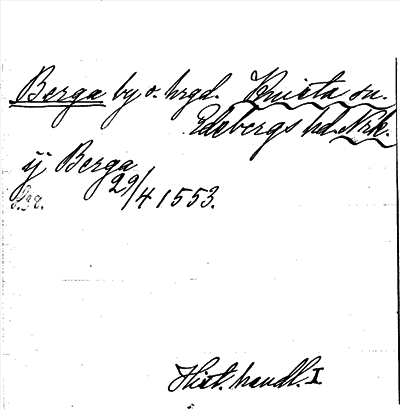 Berga by o. hrgd. Knista sn.
Edsbergs hd. Nrk.
ÿ Berga
29/4 1553.
Hist. handl. I